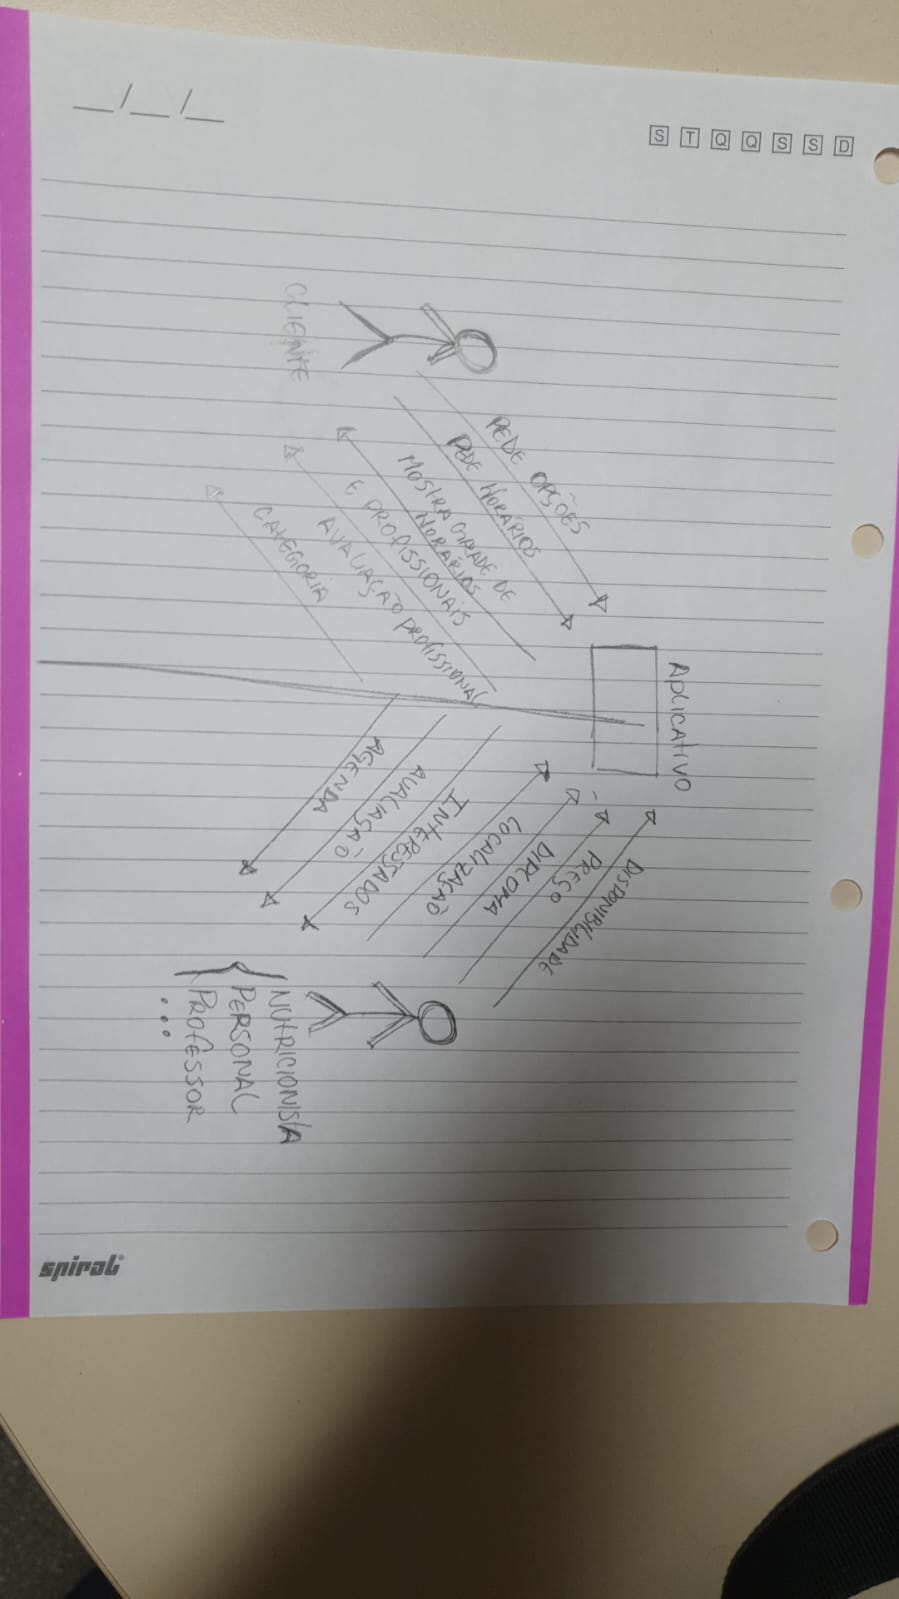 __/__/__
S T Q Q S S D
APLICATIVO
PEDE OPÇÕES
PEDE HORÁRIOS
MOSTRA GRADE DE
HORÁRIOS
E PROFISSIONAIS
AVALIAÇÃO PROFISSIONAL
CATEGORIA
CLIENTE
DISPONIBILIDADE
PREÇO
DIPLOMA
LOCALIZAÇÃO
INTERESSADOS
AVALIAÇÃO
AGENDA
NUTRICIONISTA
PERSONAL
PROFESSOR
...
spiral®